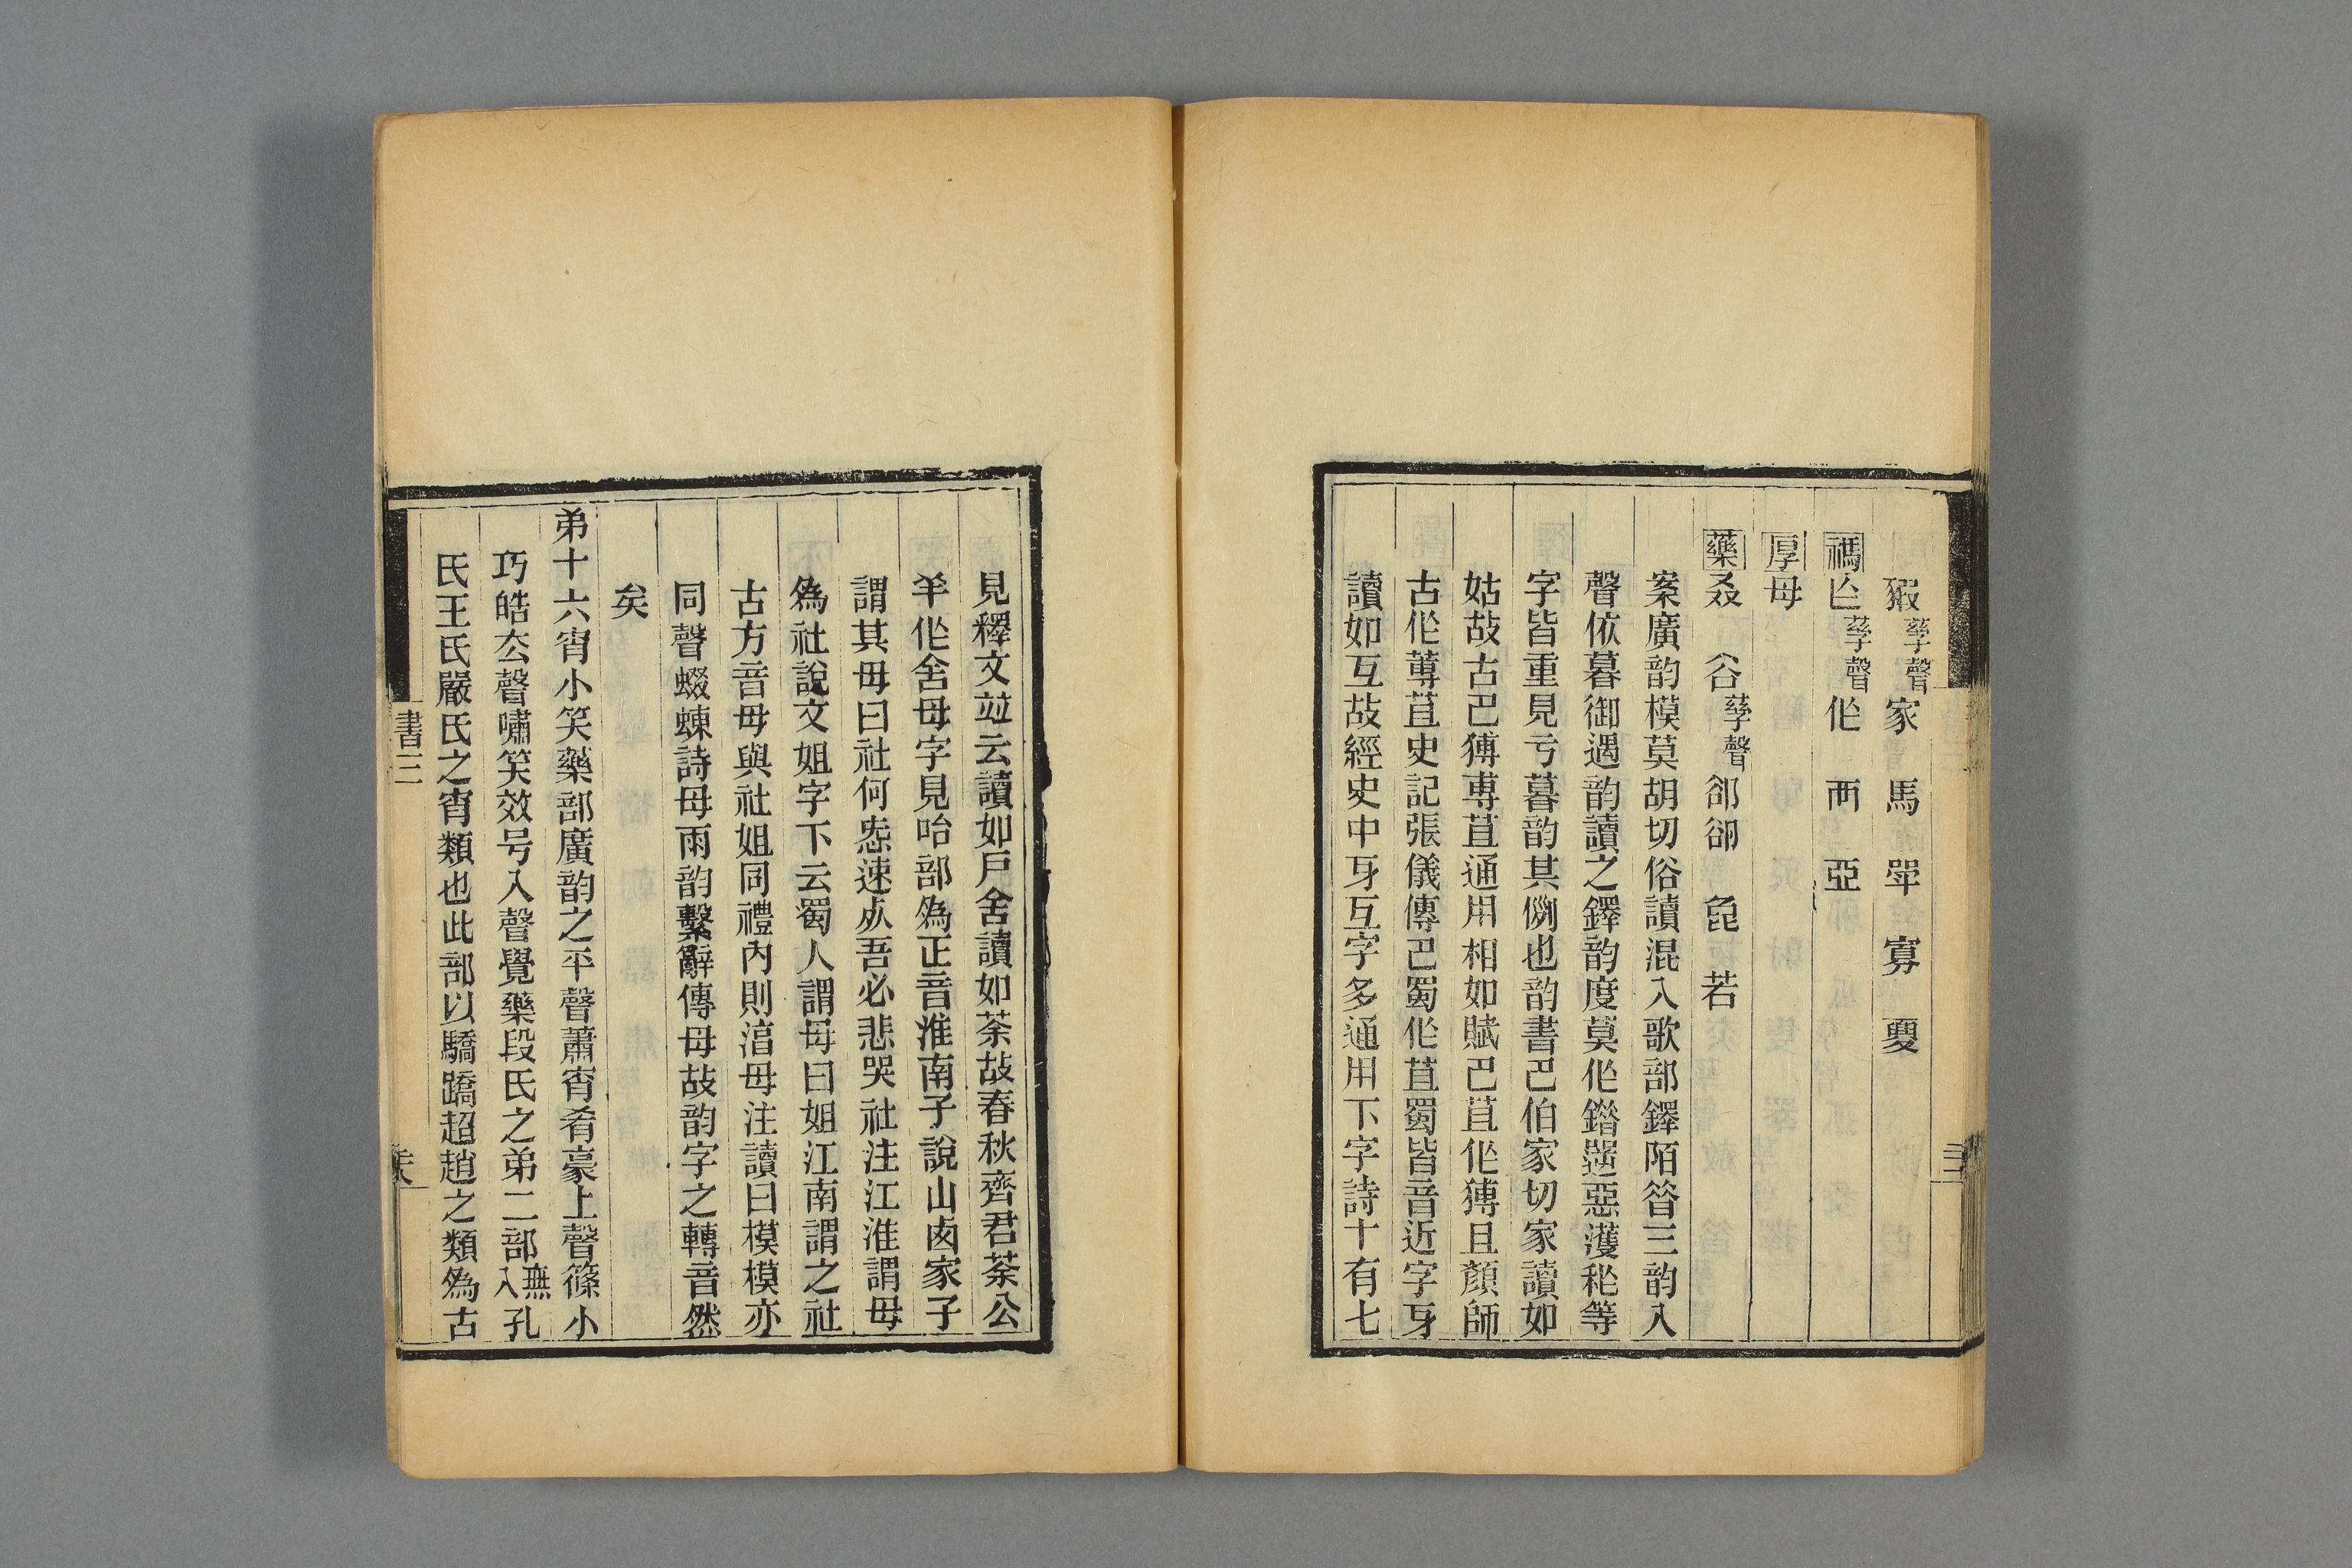 豭孳聲 家 馬 斝 寡 夏
禡 亾孳聲 𠈇 襾 亞
厚 母
藥 叒 谷孳聲 郤卻 㲋 若
案廣韵模莫胡切俗讀混入歌部鐸陌昝三韵入
聲依暮御遇韵讀之鐸韵度莫作錯遻惡濩秨等
字皆重見亏暮韵其例也韵書巴伯家切家讀如
姑故古巴猼專苴通用相如賦巴苴作猼且顏師
古作蓴苴史記張儀傳巴蜀作苴蜀皆音近字牙
讀如互故經史中牙互字多通用下字詩十有七
見釋文竝云讀如戶舍讀如荼故春秋齊君荼公
羊作舍母字見咍部為正音淮南子說山卤家子
謂其母曰社何㤅速㱙吾必悲哭社注江淮謂母
為社說文姐字下云蜀人謂母曰姐江南謂之社
古方音母與社姐同禮內則淯母注讀曰模模亦
同聲蝃蝀詩母雨韵繫辭傳母故韵字之轉音然
矣
弟十六宵小笑藥部廣韵之平聲蕭宵肴豪上聲篠小
巧皓厺聲嘯笑效号入聲覺藥段氏之弟二部無入孔
氏王氏嚴氏之宵類也此部以驕蹻超趙之類為古
書三